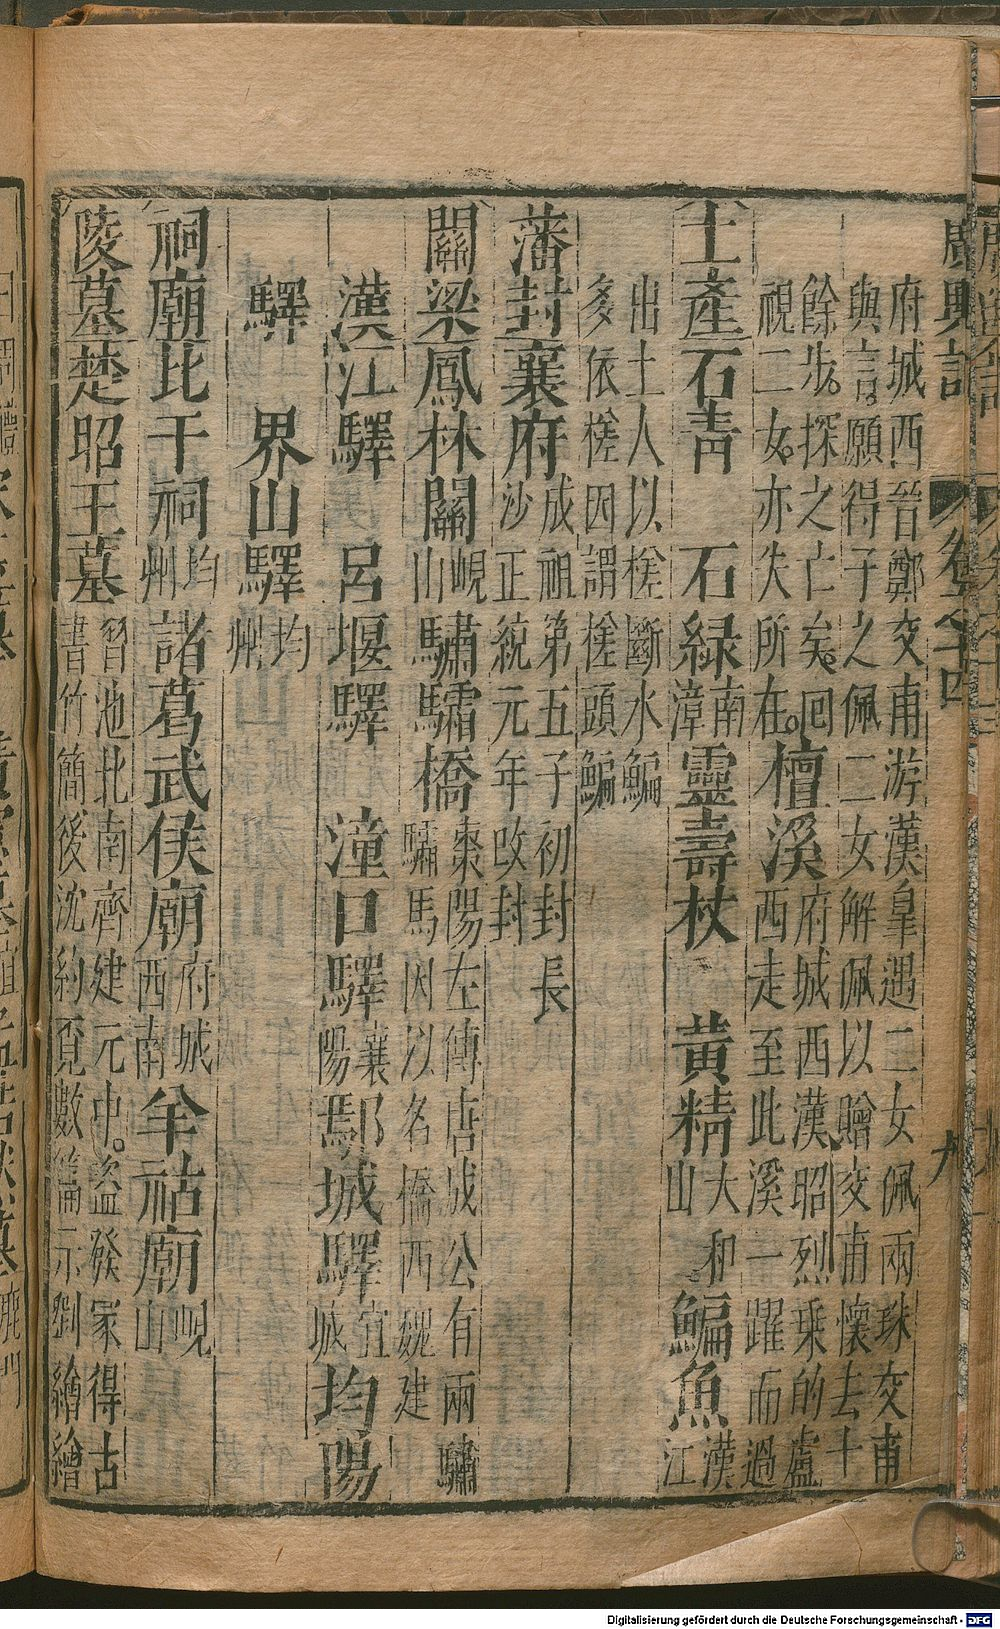 廣輿記 卷之十四 九
府城西晉鄭交甫游漢皐遇二女佩兩珠交甫
與言願得子之佩二女解佩以贈交甫懷去十
餘步探之亡矣回
視二女亦失所在
檀溪
府城西漢昭烈乗的盧
西走至此溪一躍而過
土產石青 石緑南漳靈壽杖 黄精大和山鯿魚漢江
出土人以槎斷水鯿
多依槎因謂槎頭鯿
藩封襄府
成祖第五子初封長
沙正統元年改封
關梁鳳林關峴山驌驦橋
棗陽左傳唐成公有兩驌
驦馬因以名橋西魏建
漢江驛 呂堰驛 潼口驛襄陽鄢城驛宜城均陽
驛 界山驛均州
祠廟比干祠均州諸葛武侯廟府城西南羊祜廟峴山
陵墓楚昭王墓
習池北南齊建元中盗發冢得古
書竹簡後沈約覔數篇示劉繪繪
Digitalisierung gefördert durch die Deutsche Forschungsgemeinschaft - DFG